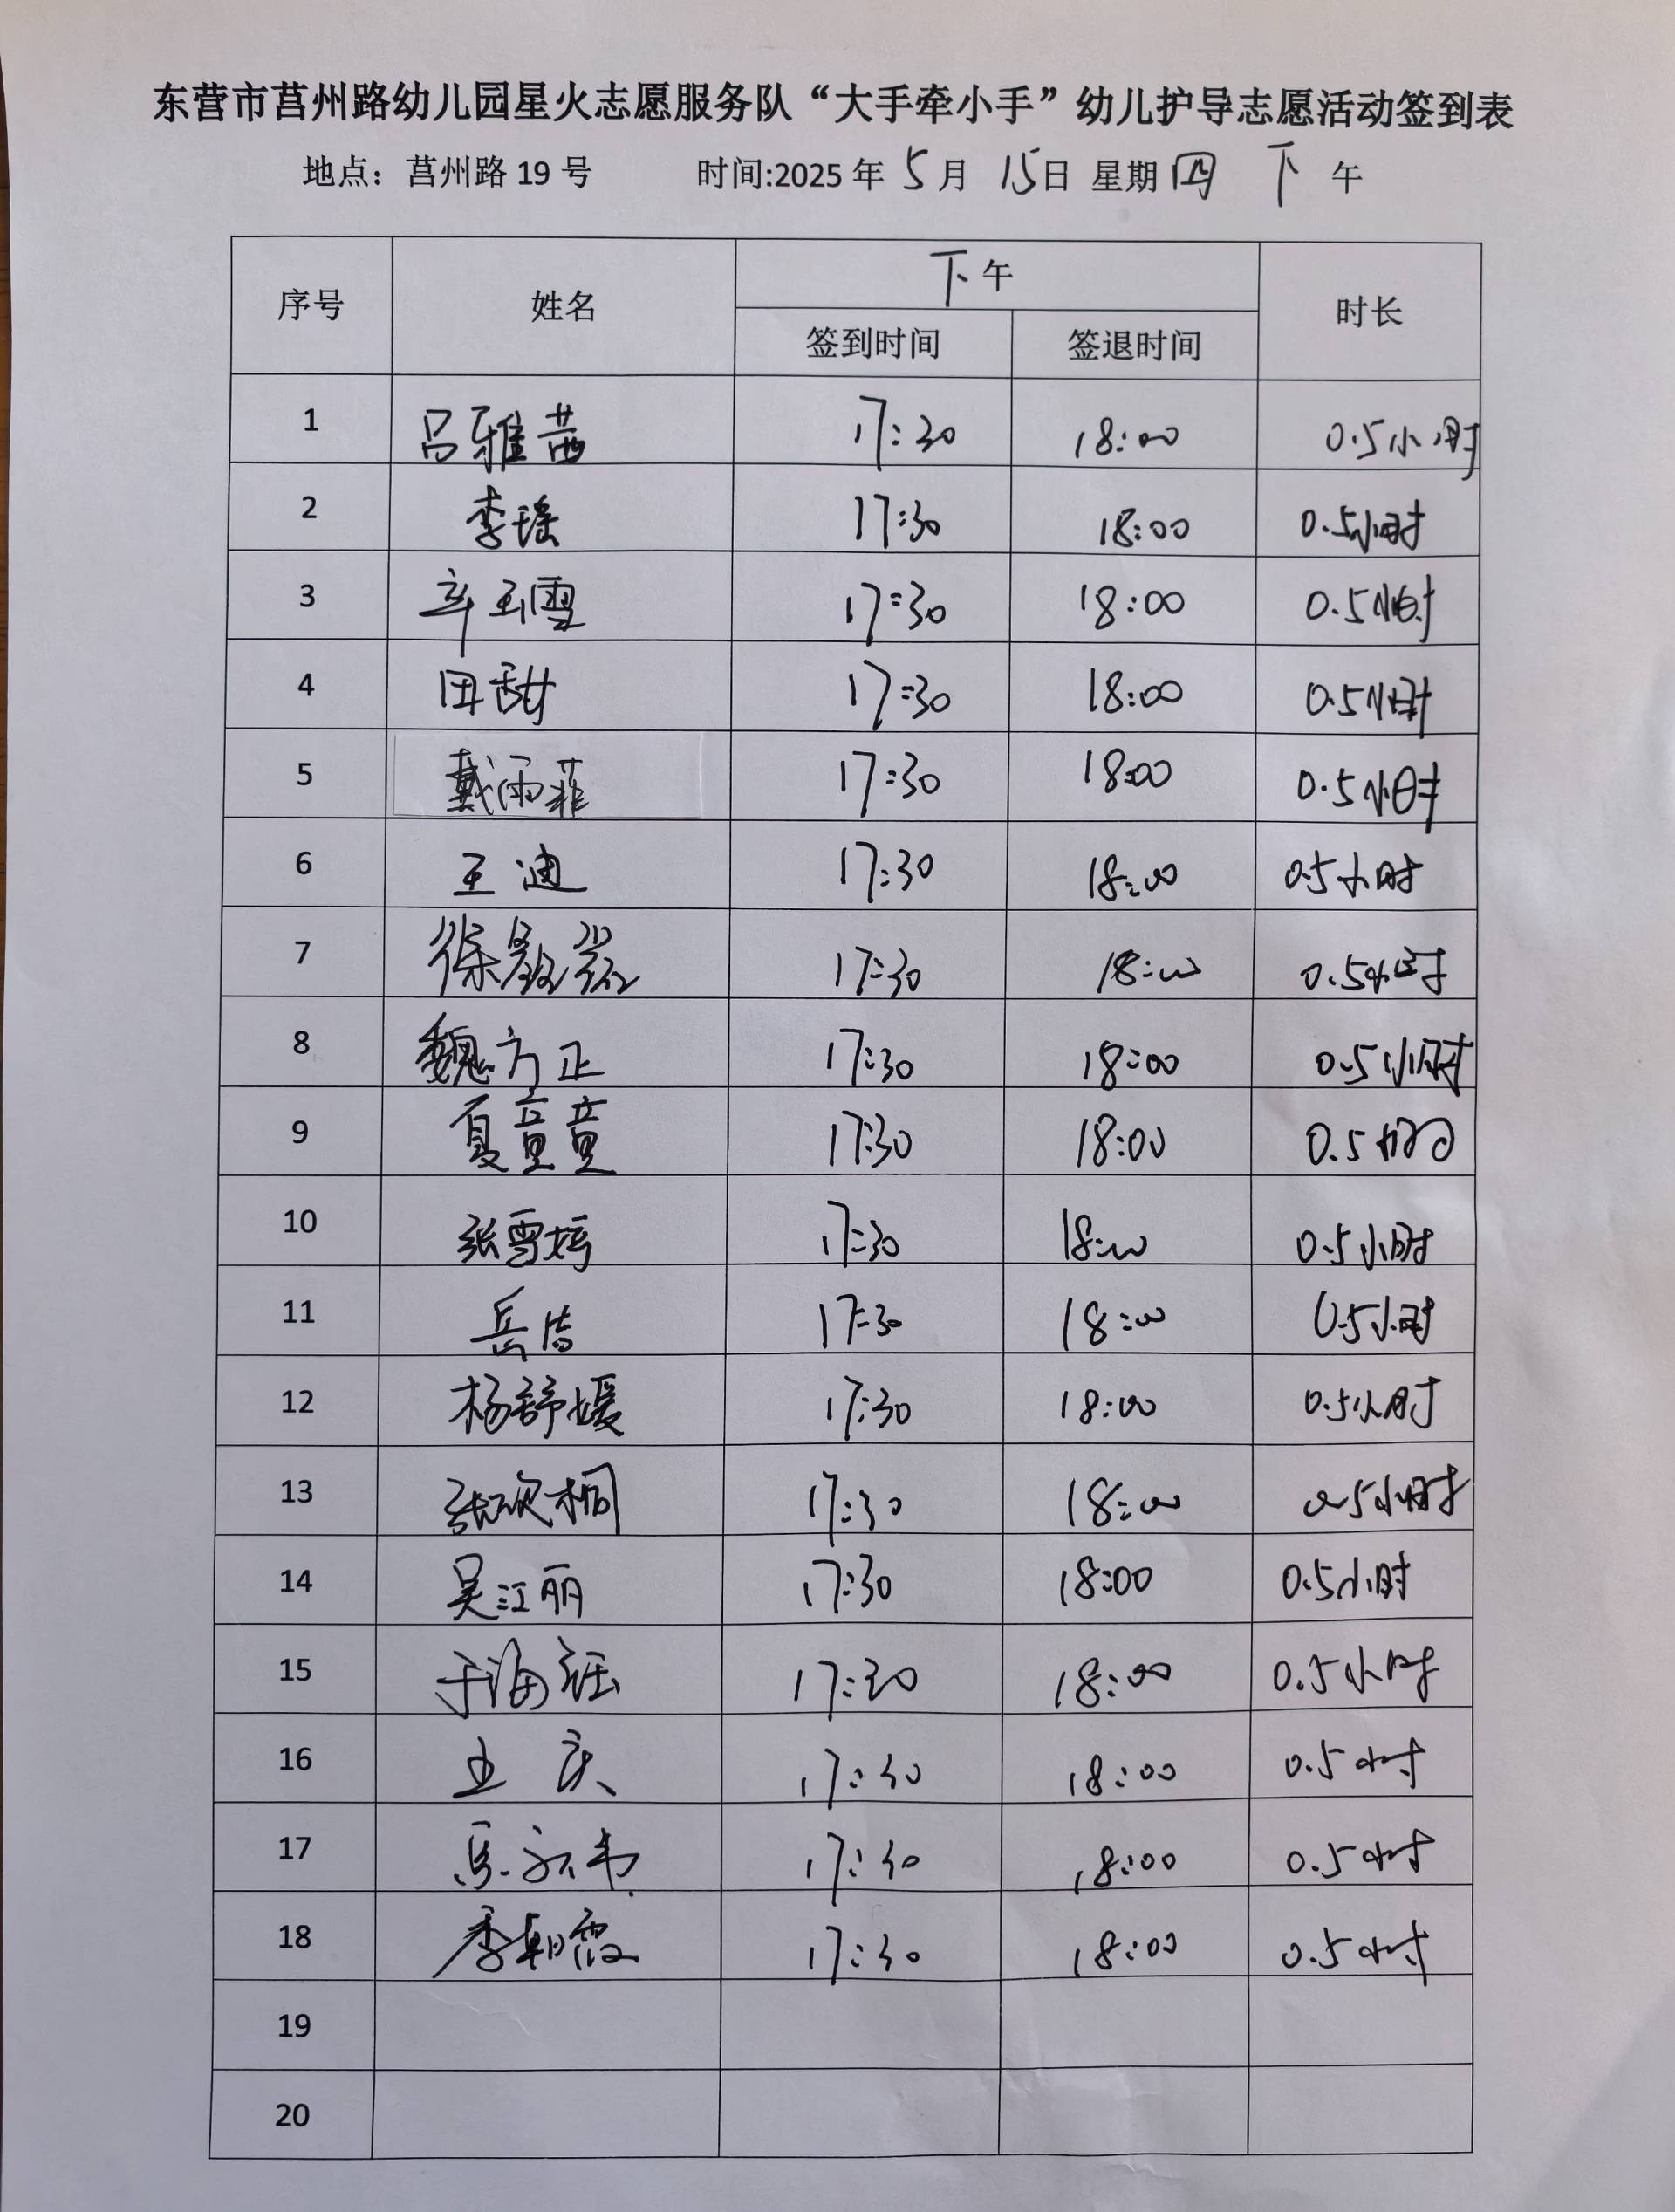 东营市莒州路幼儿园星火志愿服务队“大手牵小手”幼儿护导志愿活动签到表
地点：莒州路 19 号 时间:2025 年 5 月 15日 星期 四 下 午
序号 姓名 下午 时长
签到时间 签退时间
1 吕雅茜 17:30 18:00 0.5小时
2 李瑶 17:30 18:00 0.5小时
3 辛玉雪 17:30 18:00 0.5小时
4 田甜 17:30 18:00 0.5小时
5 戴雨菲 17:30 18:00 0.5小时
6 王迪 17:30 18:00 0.5小时
7 徐 17:30 18:00 0.5小时
8 魏方正 17:30 18:00 0.5小时
9 夏童童 17:30 18:00 0.5小时
10 张雪婷 17:30 18:00 0.5小时
11 岳洁 17:30 18:00 0.5小时
12 杨舒媛 17:30 18:00 0.5小时
13 张砚桐 17:30 18:00 0.5小时
14 吴江丽 17:30 18:00 0.5小时
15 于海钰 17:30 18:00 0.5小时
16 17:30 18:00 0.5小时
17 17:30 18:00 0.5小时
18 季朝霞 17:30 18:00 0.5小时
19
20